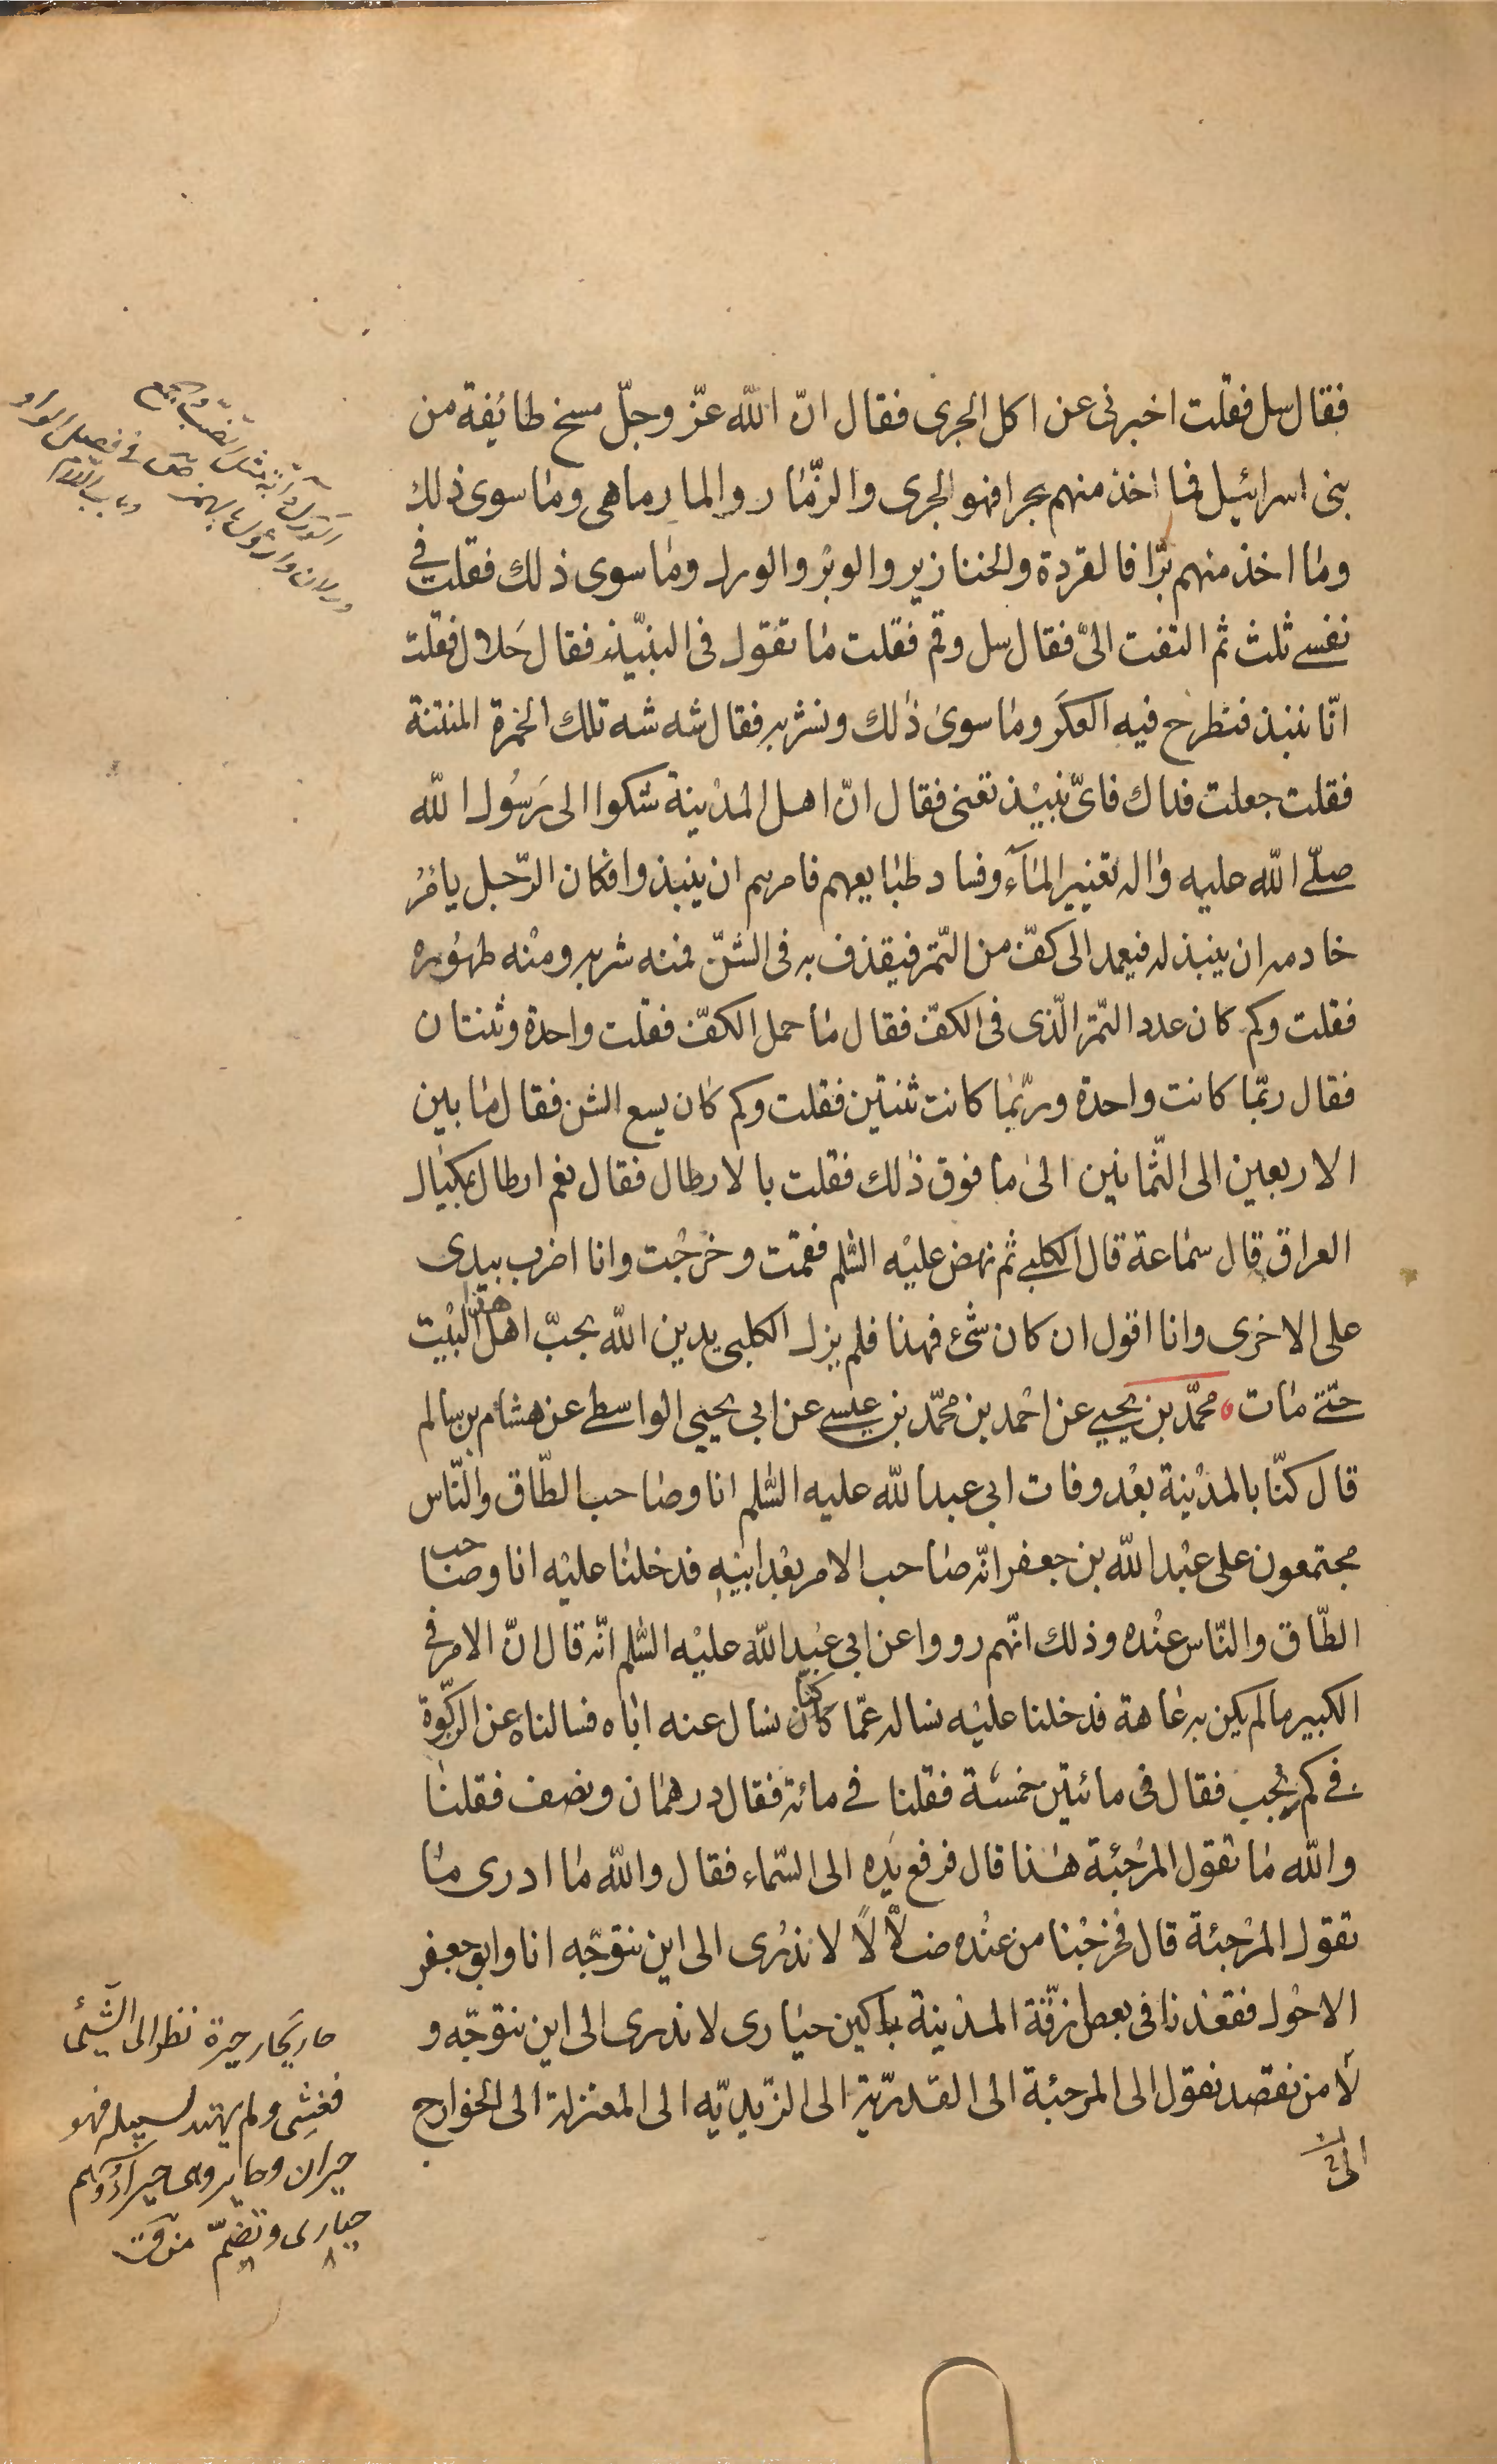 فقال سل فقلت اخبرنى عن اكل الجرى فقال انّ الله عزّ وجلّ مسخ طايفة من
بنى اسرائيل فما اخذ منهم بحرا فهو الجرى والزمّار والمارماهى وما سوى ذلك
وما اخذ منهم برّا فالقردة والخنازير والوبر والورل وما سوى ذلك فقلت فى
نفسى ثلث ثم التفت الىّ فقال سل وقم فقلت ما تقول فى النبيذ فقال حلال فقلت
انّا ننبذ فنطرح فيه العكر وما سوى ذلك ونشربه فقال شه شه تلك الخمرة المنتنة
فقلت جعلت فداك فاىّ نبيذ تعنى فقال انّ اهل المدينة شكوا الى رسول الله
صلّى الله عليه واله تغيير المآء وفساد طبايعهم فامرهم ان ينبذوا فكان الرّجل يامر
خادمه ان ينبذ له فيعمد الى كفّ من التّمر فيقذف به فى الشنّ فمنه شربه ومنه طهوره
فقلت وكم كان عدد التّمر الّذى فى الكفّ فقال ما حمل الكفّ فقلت واحدة وثنتان
فقال ربّما كانت واحدة وربّما كانت ثنتين فقلت وكم كان يسع الشن فقال ما بين
الاربعين الى الثّمانين الى ما فوق ذلك فقلت بالارطال فقال نعم ارطال بمكيال
العراق قال سماعة قال الكلبى ثم نهض عليه السّلم فقمت وخرجت وانا اضرب بيدى
على الاخرى وانا اقول ان كان شىء فهذا فلم يزل الكلبى يدين الله بحبّ اهل هذا البيت
حتّى مات محمّد بن يحيى عن احمد بن محمّد بن عيسى عن ابى يحيى الواسطى عن هشام بن سالم
قال كنّا بالمدينة بعد وفات ابى عبد الله عليه السّلم انا وصاحب الطّاق والنّاس
مجتمعون على عبد الله بن جعفر انّه صاحب الامر بعد ابيه فدخلنا عليه انا وصاحب
الطّاق والنّاس عنده وذلك انّهم رووا عن ابى عبد الله عليه السّلم انّه قال انّ الامر فى
الكبير ما لم يكن به عاهة فدخلنا عليه نساله عمّا كنا نسال عنه اباه فسالناه عن الزكوة
فى كم يجب فقال فى مائتين خمسة فقلنا فى مائة فقال درهمان ونصف فقلنا
والله ما تقول المرجئة هذا قال فرفع يده الى السّماء فقال والله ما ادرى ما
تقول المرجئة قال فخرجنا من عنده ضلّالًا لا ندرى الى اين نتوجّه انا وابو جعفر
الاحول فقعدنا فى بعض ازقّة المدينة باكين حيارى لا ندرى الى اين نتوجّه و
لا من نقصد نقول الى المرجئة الى القدريّة الى الزّيديّه الى المعتزلة الى الخوارج
حار يحار حيرة نظر الى الشّيئ
فغشى ولم يهتد لسبيله فهو
حيران وحاير وهى حيراء وهم
حيارى وتضمّ منه ق